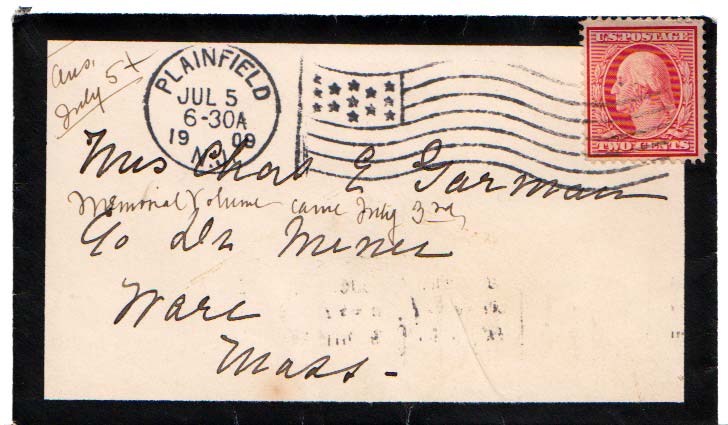 Ans.
July 5th
PLAINFIELD
JUL 5
6-30A
1909
N.J.
U.S. POSTAGE
TWO CENTS
Mrs Chas E Garman
Memorial Volume came July 3rd,
Co Dr Miner
Ware
Mass -